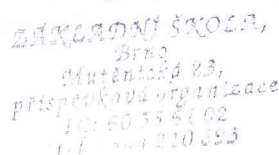 ZÁKLADNÍ ŠKOLA,
Brno
Mutěnická 23,
příspěvková organizace
IČ: 60 55 61 02